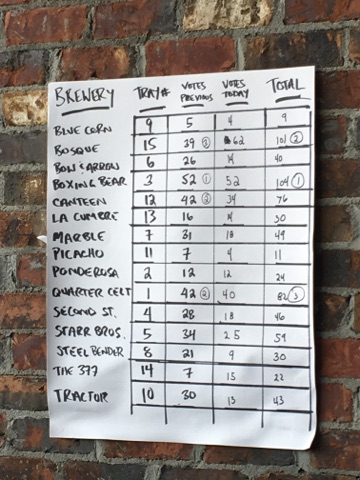 BREWERY TRAY# VOTES PREVIOUS VOTES TODAY TOTAL
BLUE CORN 9 5 4 9
BOSQUE 15 39 ③ 62 101 ②
BOW & ARROW 6 26 14 40
BOXING BEAR 3 52 ① 52 104 ①
CANTEEN 12 42 ② 34 76
LA CUMBRE 13 16 14 30
MARBLE 7 31 18 49
PICACHO 11 7 4 11
PONDEROSA 2 12 12 24
QUARTER CELT 1 42 ② 40 82 ③
SECOND ST. 4 28 18 46
STARR BROS. 5 34 25 59
STEEL BENDER 8 21 9 30
THE 377 14 7 15 22
TRACTOR 10 30 13 43